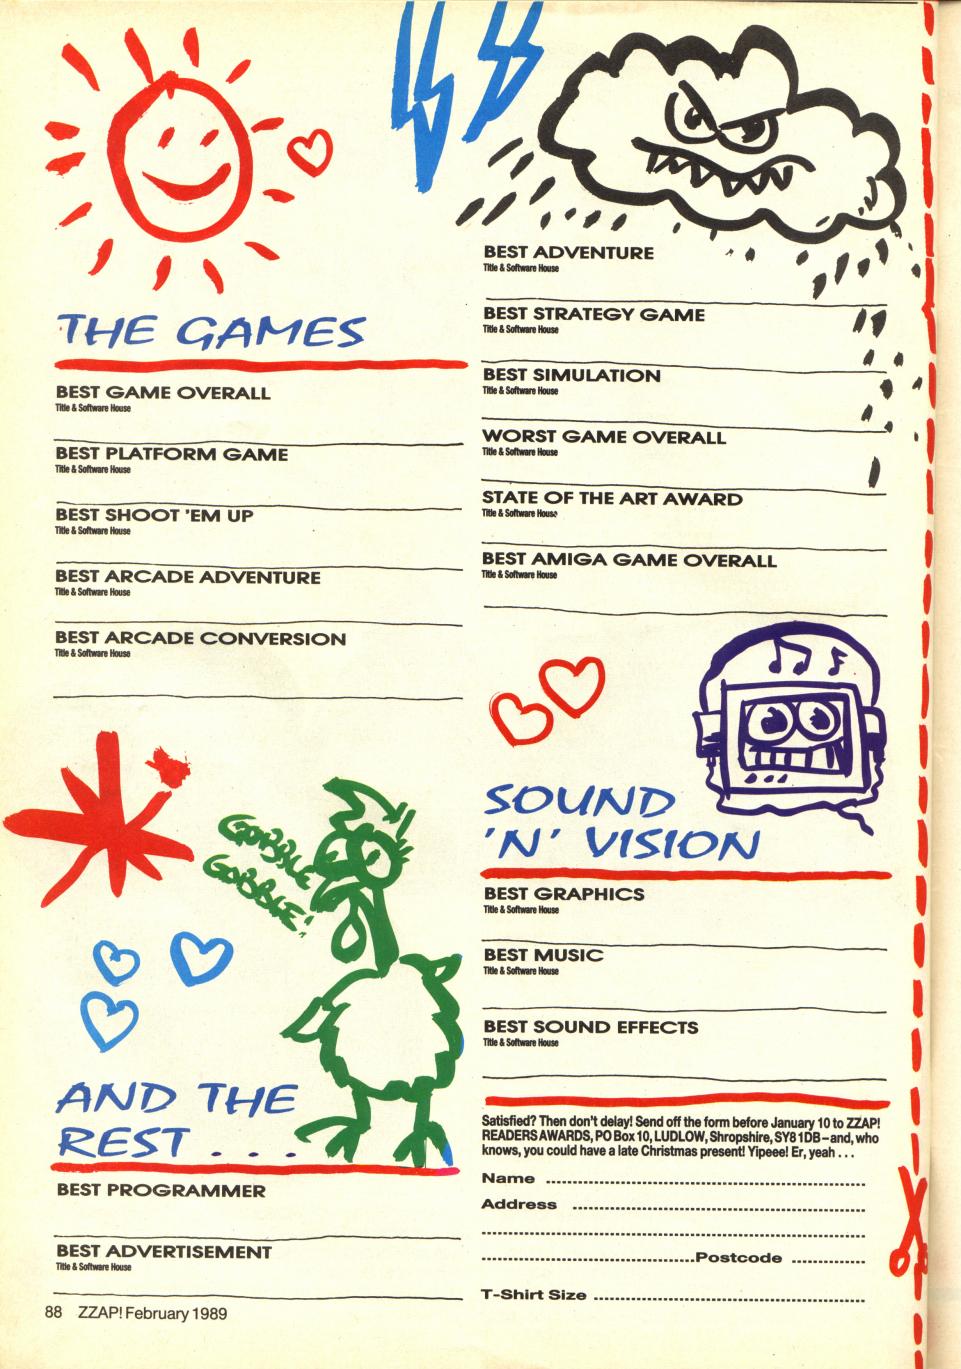 THE GAMES
BEST GAME OVERALL
Title & Software House
BEST PLATFORM GAME
Title & Software House
BEST SHOOT 'EM UP
Title & Software House
BEST ARCADE ADVENTURE
Title & Software House
BEST ARCADE CONVERSION
Title & Software House
GOBBLE
GOBBLE!
AND THE
REST ....
BEST PROGRAMMER
BEST ADVERTISEMENT
Title & Software House
BEST ADVENTURE
Title & Software House
BEST STRATEGY GAME
Title & Software House
BEST SIMULATION
Title & Software House
WORST GAME OVERALL
Title & Software House
STATE OF THE ART AWARD
Title & Software House
BEST AMIGA GAME OVERALL
Title & Software House
SOUND
'N' VISION
BEST GRAPHICS
Title & Software House
BEST MUSIC
Title & Software House
BEST SOUND EFFECTS
Title & Software House
Satisfied? Then don't delay! Send off the form before January 10 to ZZAP!
READERS AWARDS, PO Box 10, LUDLOW, Shropshire, SY8 1DB – and, who
knows, you could have a late Christmas present! Yipeee! Er, yeah . . .
Name
Address
Postcode
T-Shirt Size
88 ZZAP! February 1989